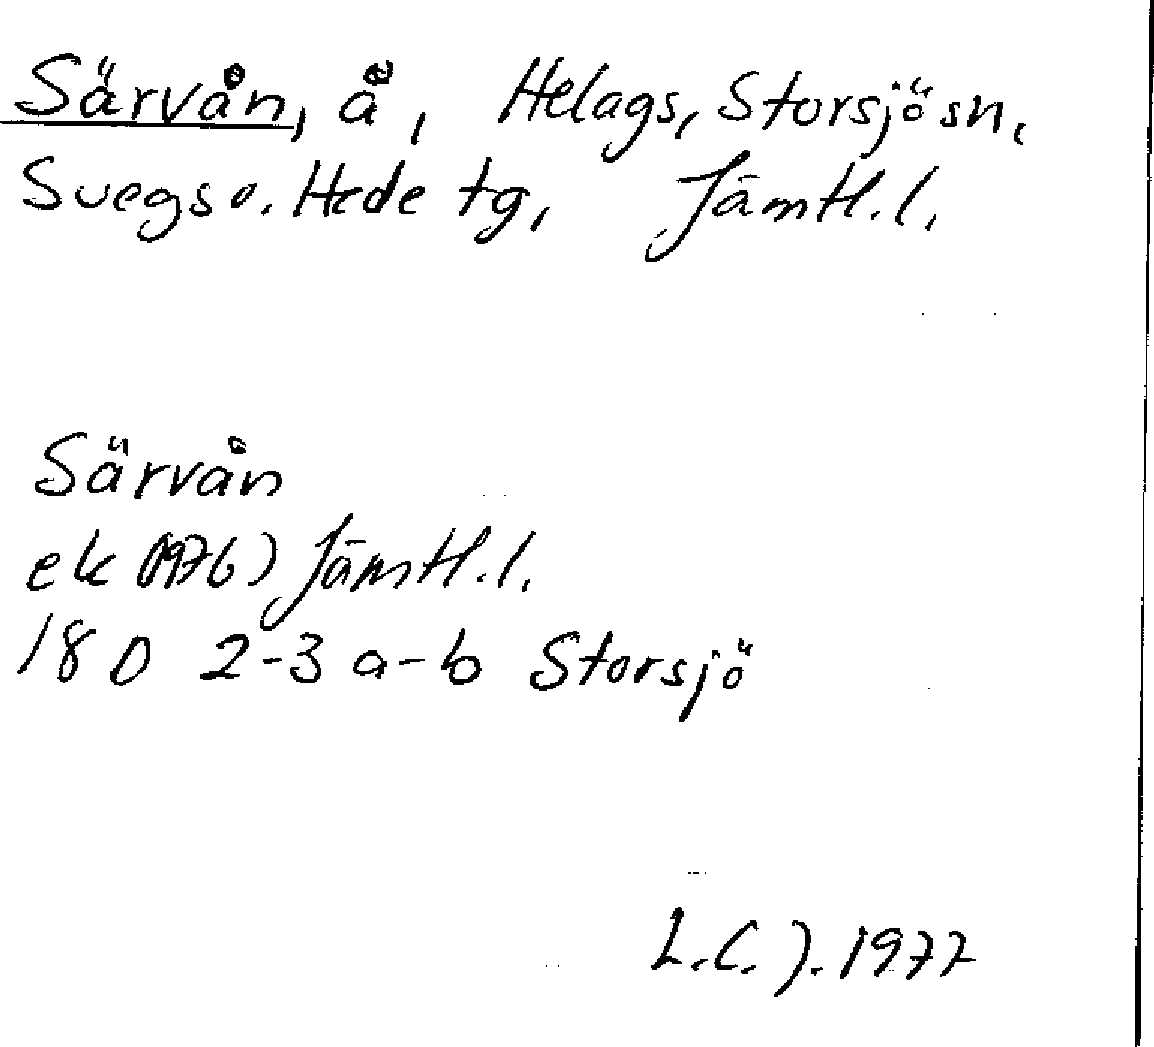 Särvån, å, Helags, Storsjö sn,
Svegs o. Hede tg, Jämtl. l.
Särvån
ek (1976) Jämtl. l.
18 D 2-3 a-b Storsjö
L.C.J. 1977